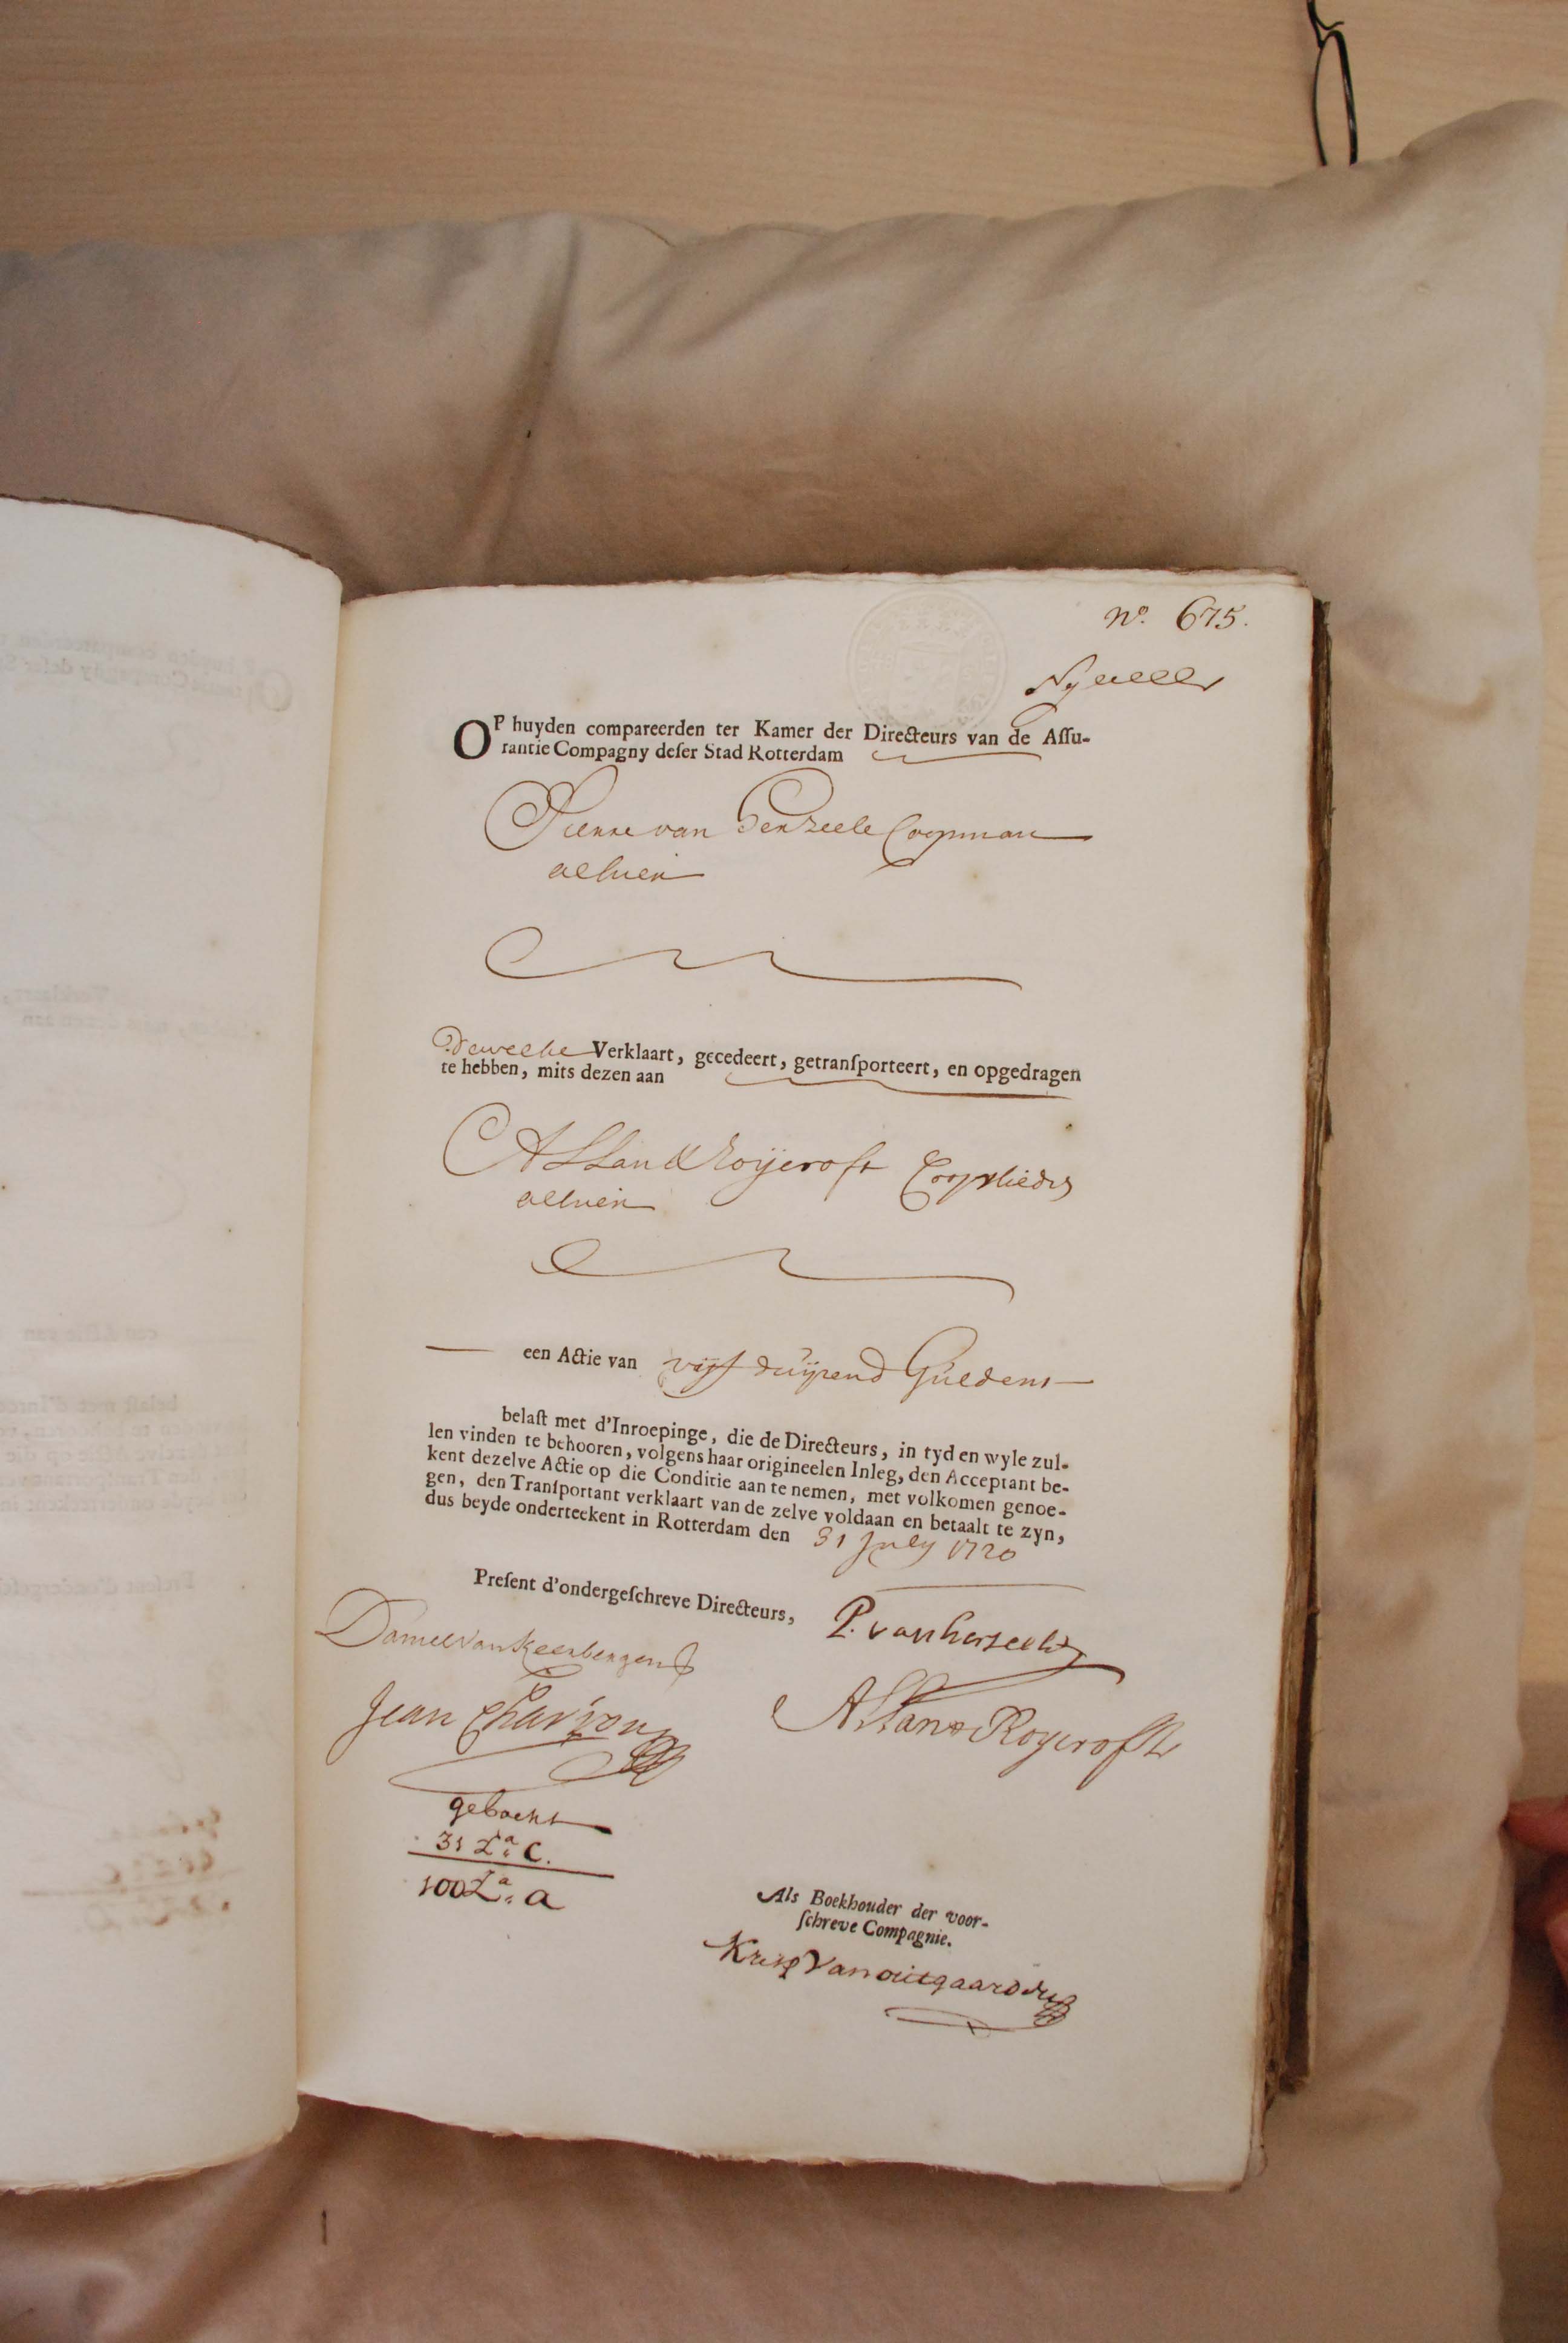 No. 675.
OP huyden compareerden ter Kamer der Directeurs van de Assu-
rantie Compagny deser Stad Rotterdam
Pierre van Coopman
alhier
Dewelke Verklaart, gecedeert, getransporteert, en opgedragen
te hebben, mits dezen aan
Allan & Roijcroft Cooplieden
alhier
een Actie van vijf duijsend Guldens
belast met d'Inroepinge, die de Directeurs, in tyd en wyle zul-
len vinden te behooren, volgens haar origineelen Inleg, den Acceptant be-
kent dezelve Actie op die Conditie aan te nemen, met volkomen genoe-
gen, den Transportant verklaart van de zelve voldaan en betaalt te zyn,
dus beyde onderteekent in Rotterdam den 31 July 1720
Present d'ondergeschreve Directeurs,
P. van
Daniel van Keerbergen
Jean
Allan & Roycroft
geboekt
31 La. C.
100 La. a
Als Boekhouder der voor-
schreve Compagnie.